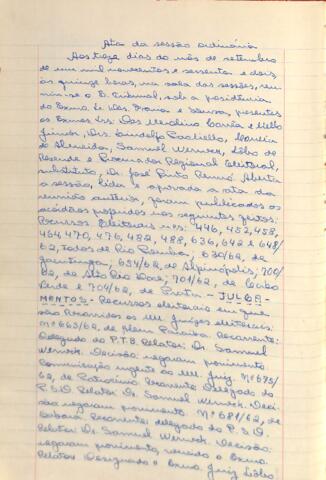 Ata da sessão ordinária
Aos treze dias do mês de setembro
de um mil novecentos e sessenta e dois,
às quinze horas, na sala das sessões, reu-
niu-se o E. Tribunal, sob a presidência
do Exmo. Sr. Des. e Souza, presentes
os Exmos. Srs. Des. Corrêa e Mello
Júnior, Drs. Lindolfo Paoliello,
de Almeida, Samuel Werneck, Lôbo de
Rezende e Procurador Regional Eleitoral,
substituto, Dr. José Pinto Renó. Aberta
a sessão, lida e aprovada a ata da
reunião anterior, foram publicados os
acórdãos proferidos nos seguintes feitos:
Recursos Eleitorais nºs: 446, 452, 458,
464, 470, 476, 482, 488, 636, 642 e 648/
62, todos de Rio Pomba, 630/62, de
654/62, de Alpinópolis, 700/
62, de Alto Rio Doce; 701/62, de
e 704/62, de Prata. - JULGA-
MENTOS - Recursos eleitorais em que
são Recorridos os MM. Juízes eleitorais:
Nº 663/62, de Além Paraíba. Recorrente:
Delegado do P.T.B. Relator: Dr. Samuel
Werneck. Decisão: negaram provimento.
Comunicação urgente ao MM. Juiz. Nº 675/
62, de Patrocínio. Recorrente: Delegado do
P.S.D. Relator: Dr. Samuel Werneck. Deci-
são: negaram provimento. Nº 681/62, de
Sabará. Recorrente: delegado do P.S.D.
Relator: Dr. Samuel Werneck. Decisão:
negaram provimento, vencido o Exmo.
Relator. Designado o Exmo. Juiz Lôbo